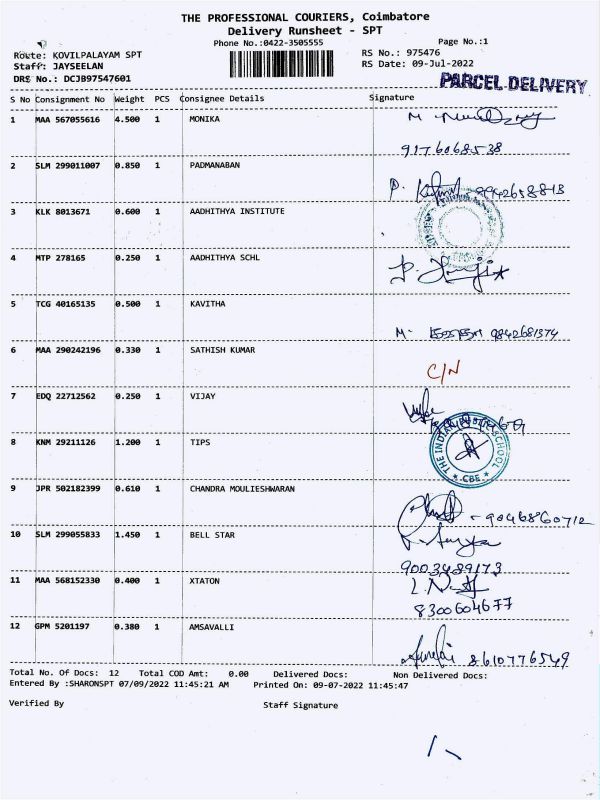 THE PROFESSIONAL COURIERS, Coimbatore
Delivery Runsheet - SPT
Phone No.:0422-3505555 Page No.:1
Route: KOVILPALAYAM SPT RS No.: 975476
Staff: JAYSEELAN RS Date: 09-Jul-2022
DRS No.: DCJB97547601 PARCEL DELIVERY
S No Consignment No Weight PCS Consignee Details Signature
1 MAA 567055616 4.500 1 MONIKA
9176068538
2 SLM 299011007 0.850 1 PADMANABAN
9942658813
3 KLK 8013671 0.600 1 AADHITHYA INSTITUTE
4 MTP 278165 0.250 1 AADHITHYA SCHL
5 TCG 40165135 0.500 1 KAVITHA
M. 9842681374
6 MAA 290242196 0.330 1 SATHISH KUMAR
C/N
7 EDQ 22712562 0.250 1 VIJAY
8 KNM 29211126 1.200 1 TIPS
THE INDIAN PUBLIC SCHOOL
* CBE *
9 JPR 502182399 0.610 1 CHANDRA MOULIESHWARAN
- 9046860712
10 SLM 299055833 1.450 1 BELL STAR
9003489173
11 MAA 568152330 0.400 1 XTATON
8300604677
12 GPM 5201197 0.380 1 AMSAVALLI
8610776549
Total No. Of Docs: 12 Total COD Amt: 0.00 Delivered Docs: Non Delivered Docs:
Entered By :SHARONSPT 07/09/2022 11:45:21 AM Printed On: 09-07-2022 11:45:47
Verified By Staff Signature